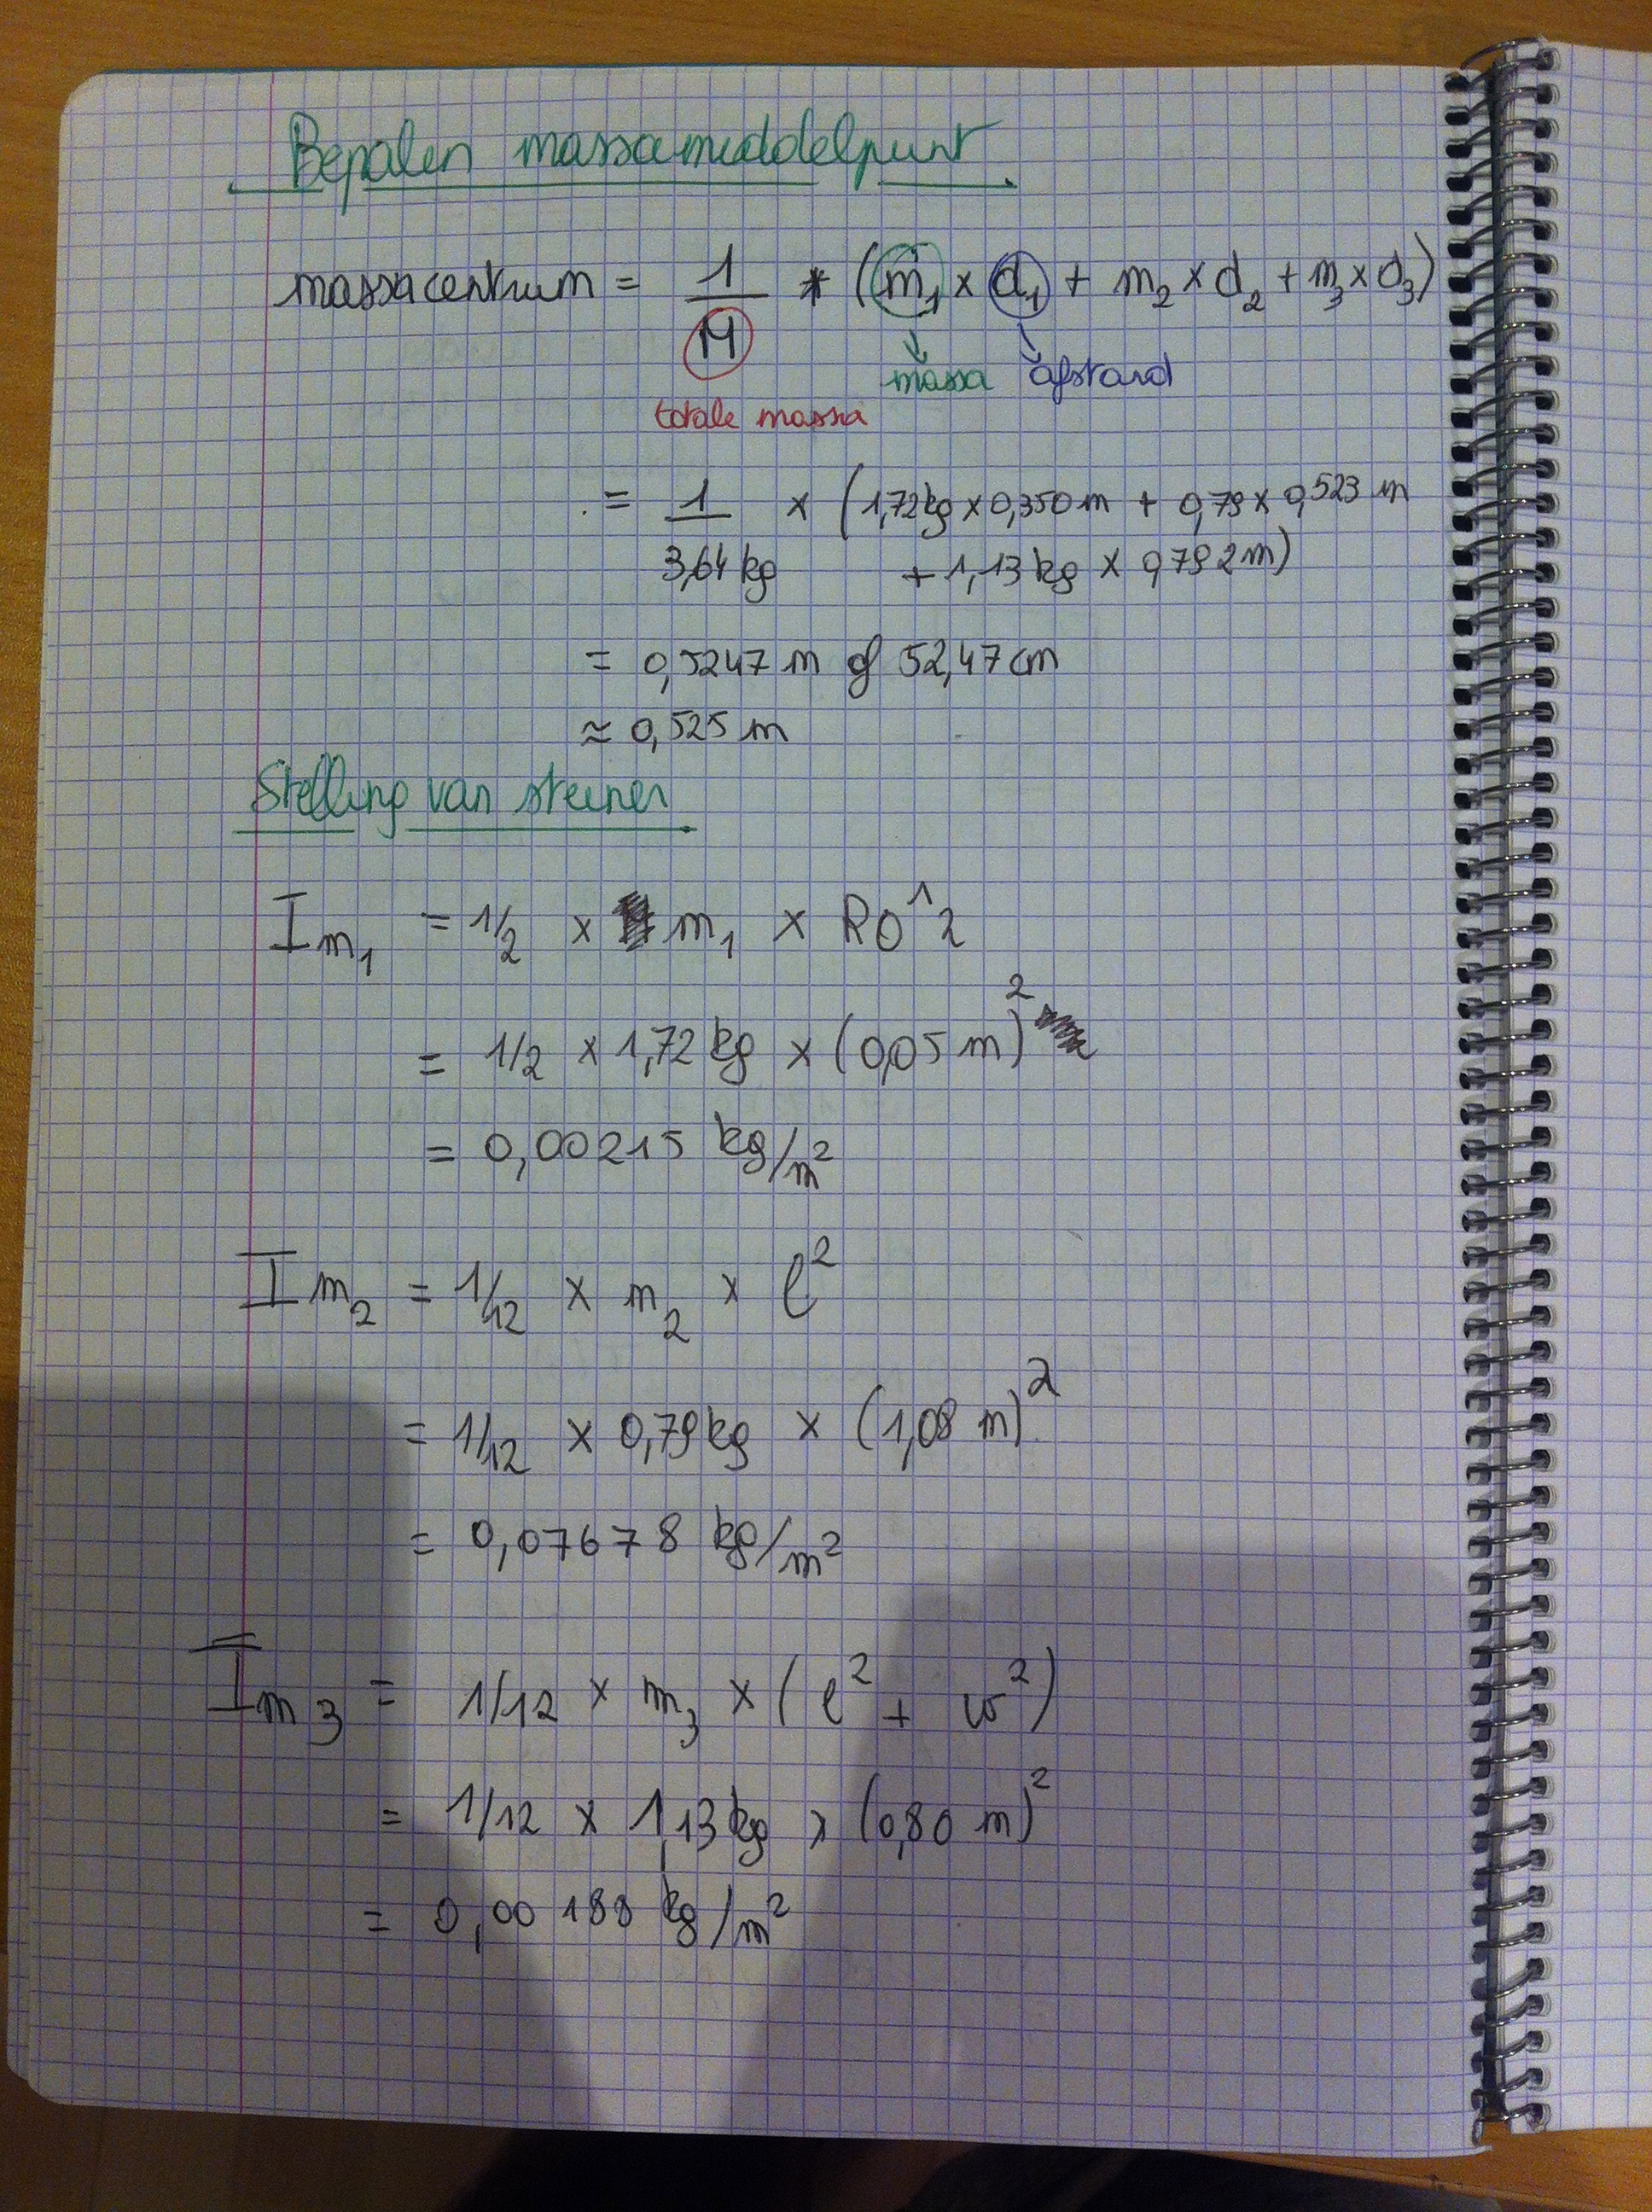 Bepalen massamiddelpunt
massacentrum = 1/M * (m₁ × d₁ + m₂ × d₂ + m₃ × d₃)
massa afstand
totale massa
= 1/3,64 kg × (1,72kg × 0,350 m + 0,79 × 0,523 m
+ 1,13 kg × 0,792 m)
= 0,5247 m of 52,47 cm
≈ 0,525 m
Stelling van steiner
I m₁ = 1/2 × m₁ × R0^2
= 1/2 × 1,72 kg × (0,05 m)²
= 0,00215 kg/m²
I m₂ = 1/12 × m₂ × l²
= 1/12 × 0,79 kg × (1,08 m)²
= 0,07678 kg/m²
I m₃ = 1/12 × m₃ × (l² + w²)
= 1/12 × 1,13 kg × (0,80 m)²
= 0,00188 kg/m²